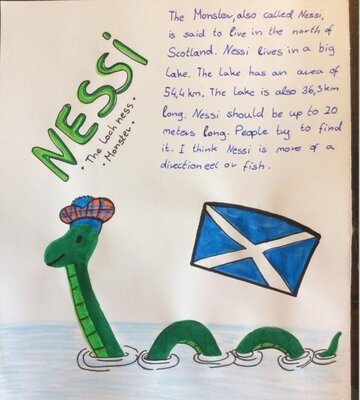 NESSI
• The Loch ness •
• Monster •
The Monster, also called Nessi,
is said to live in the north of
Scotland. Nessi lives in a big
Lake. The Lake has an area of
54,4 km. The Lake is also 36,5 km
long. Nessi should be up to 20
meters long. People try to find
it. I think Nessi is more of a
direction eel or fish.